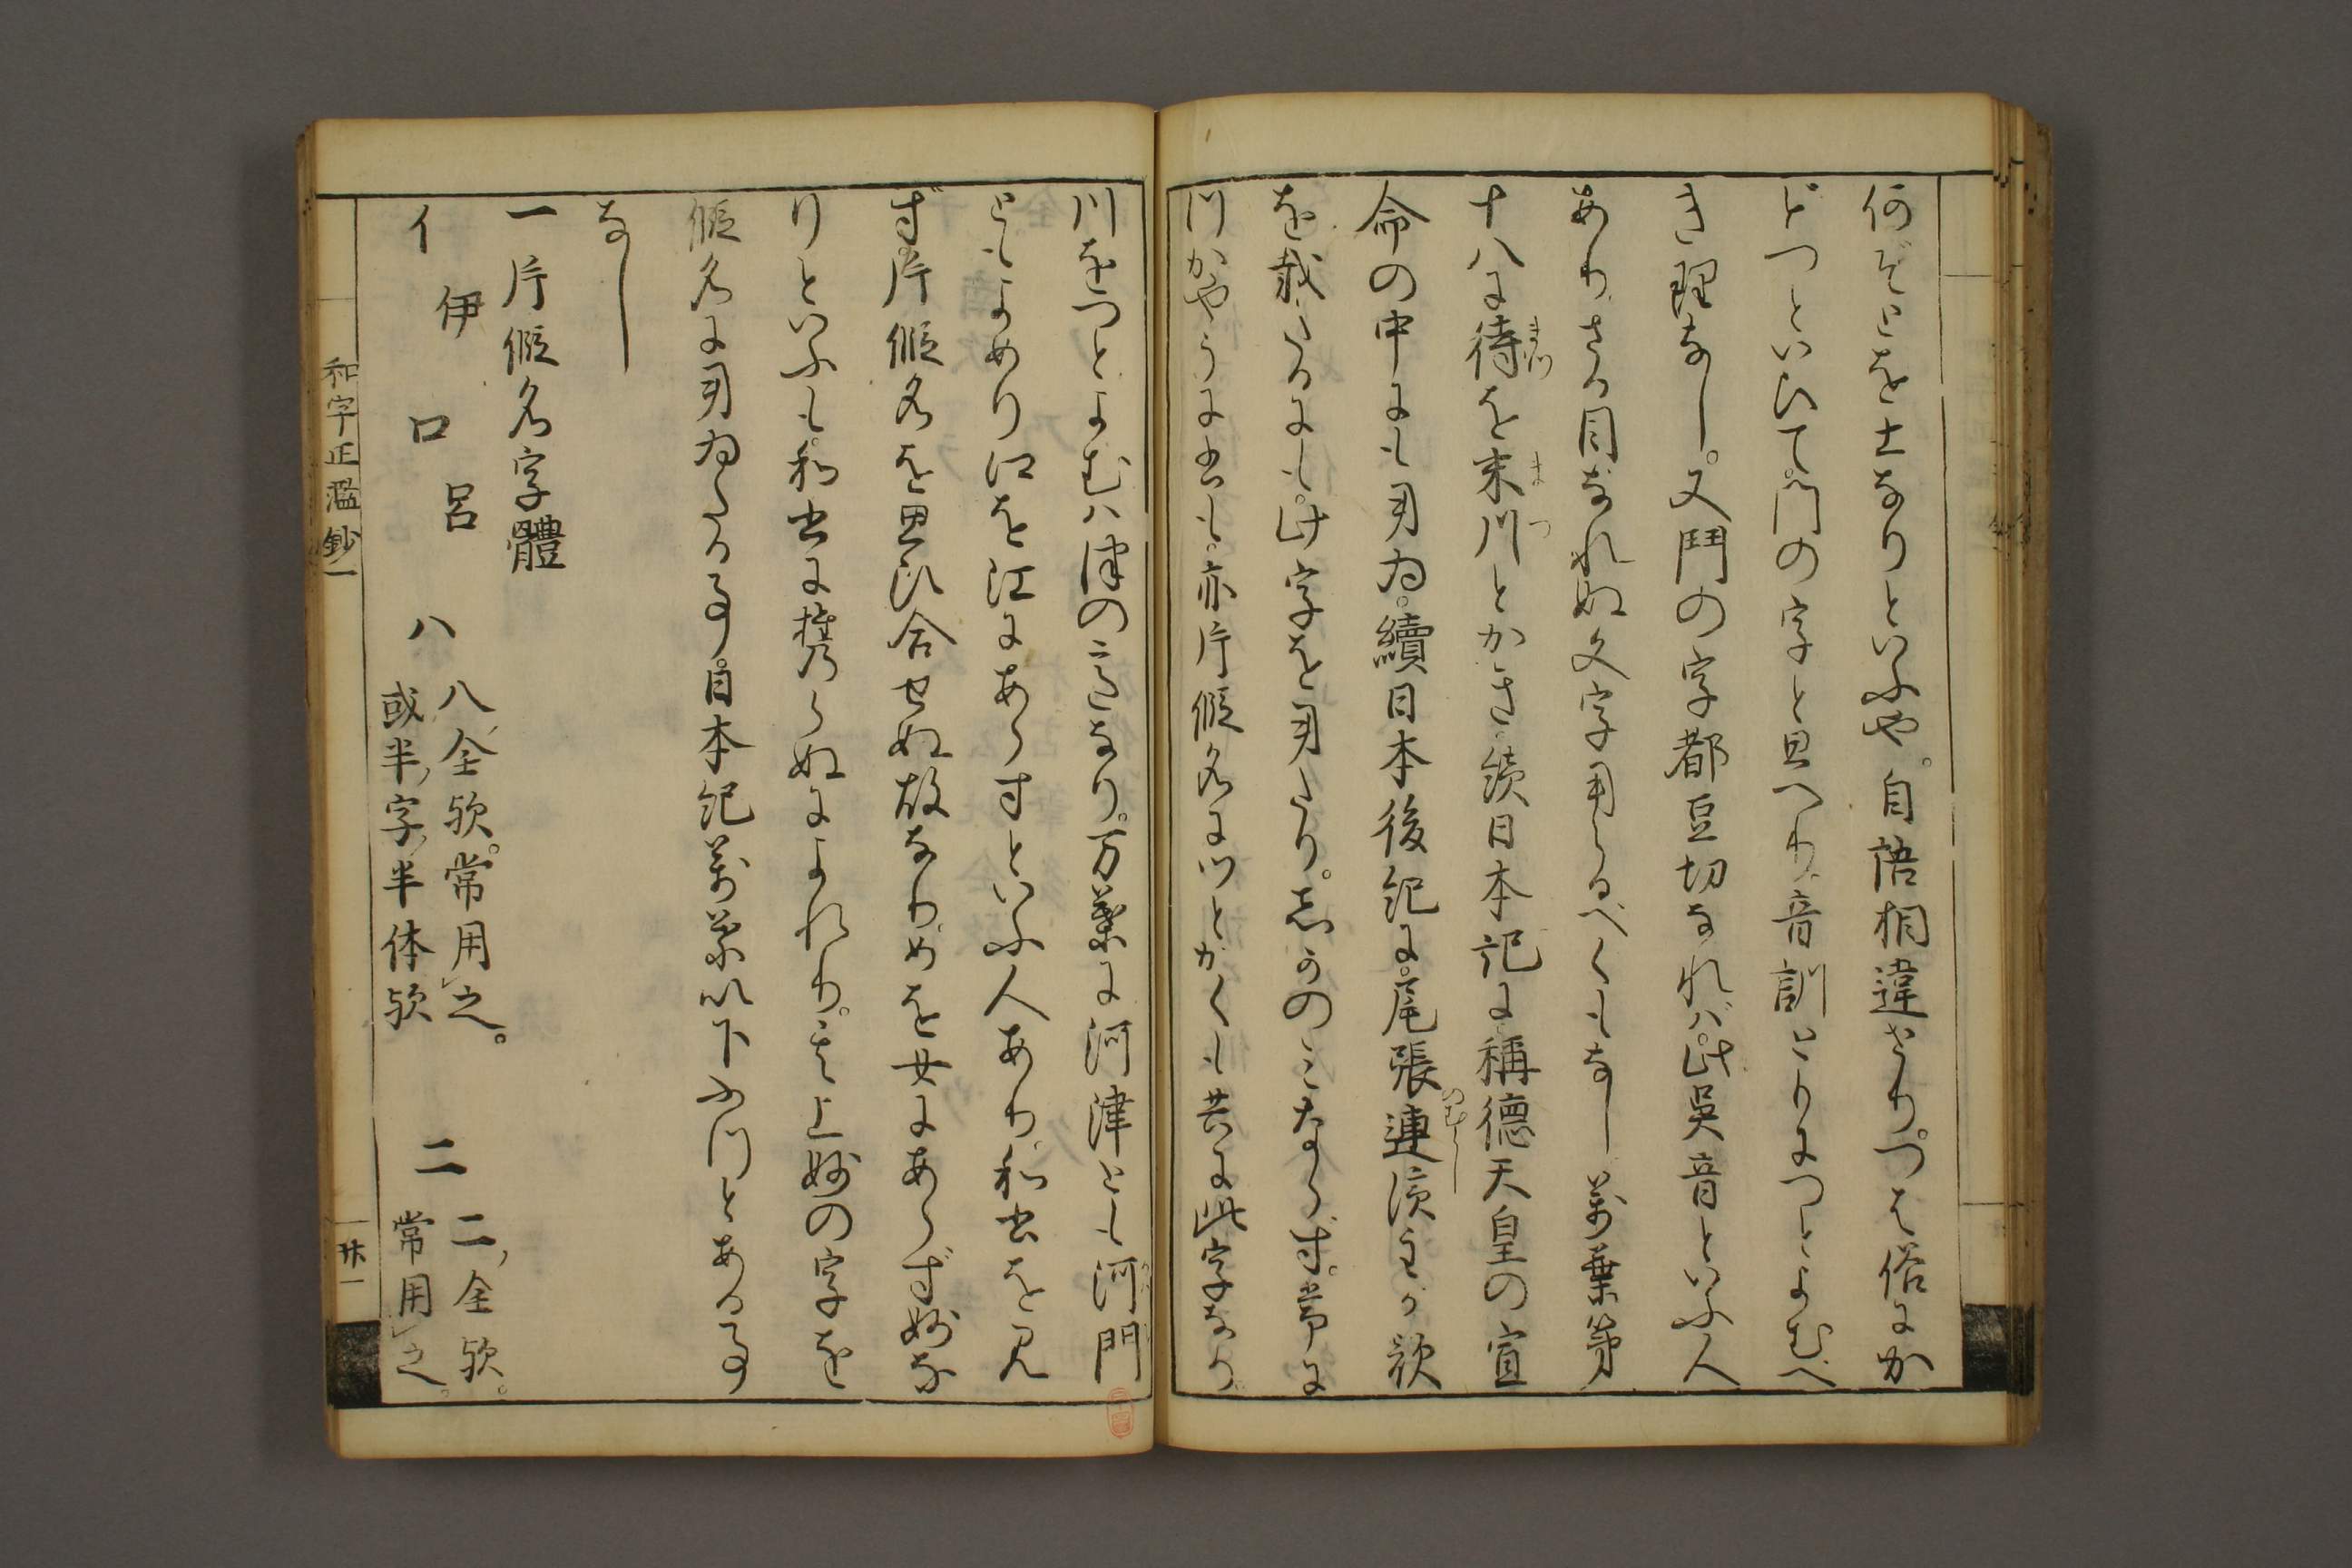 何ぞこを土なりといふや。自語相違せり。つを俗にか
どつといひて、門の字と思へり。音訓ともにつとよむべ
き理なし。又鬥の字都豆切なれば、此呉音といふ人
あり。さる目なれぬ文字用らるべくもなし。萬葉第
十八に待を末川とかき、続日本記に稱德天皇の宣
命の中にも用ゐ。續日本後紀に尾張連濱主が歌
を載たるにも、此字を用たり。しかのみならず。常に
川かやうに書も。亦片假名にツとかくも共に此字なり。
川をつとよむハ津の心なり。万葉に河津とも河門
ともよめり。江を江にあらすといふ人あり。和書を見
ず片假名を思ひ合せぬ故なり。めを女にあらず妙な
りといふも、和書に携らぬによれり。其上妙の字を
假名に用ゐたる事。日本紀萬葉以下ふつとある事
なし
一片假名字體
イ 伊 ロ 呂 ハ 八全欤。常用之。
或半字半体欤 二 二全欤。
常用之。
和字正濫鈔一
廿一
まつ
まつ
のむらし